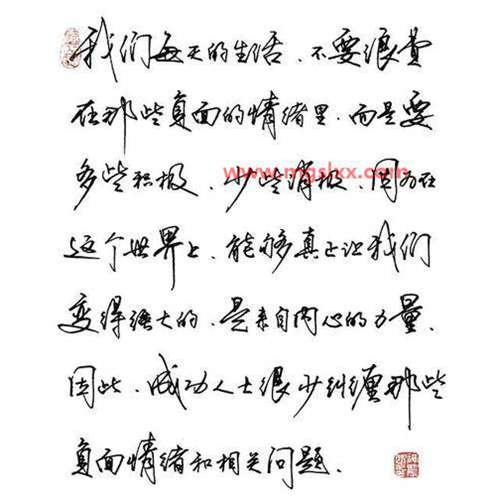 我们每天的生活、不要浪费
在那些负面的情绪里.而是要
多些积极、少些消极、因为在
www.mgslxx.com
这个世界上、能够真正让我们
变得强大的、是来自内心的力量、
因此、成功人士很少纠缠那些
负面情绪和相关问题.